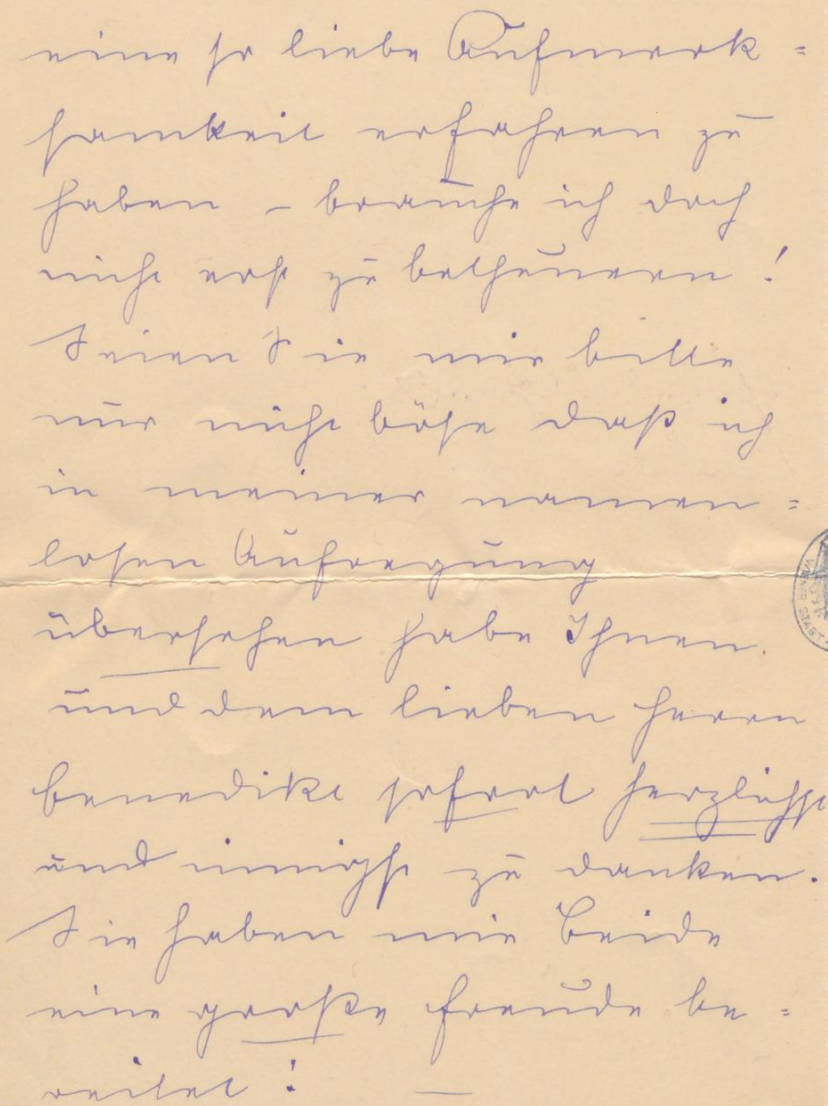 eine so liebe Aufmerk=
samkeit erfahren zu
haben – brauche ich doch
nicht erst zu betheuern!
Seien Sie mir bitte
nur nicht böse daß ich
in meiner namen=
losen Aufregung
übersehen habe Ihnen
und dem lieben Herrn
Benedikt sofort herzlichst
und innigst zu danken.
Sie haben mir Beide
eine große Freude be=
reitet! —
WIENER STADT